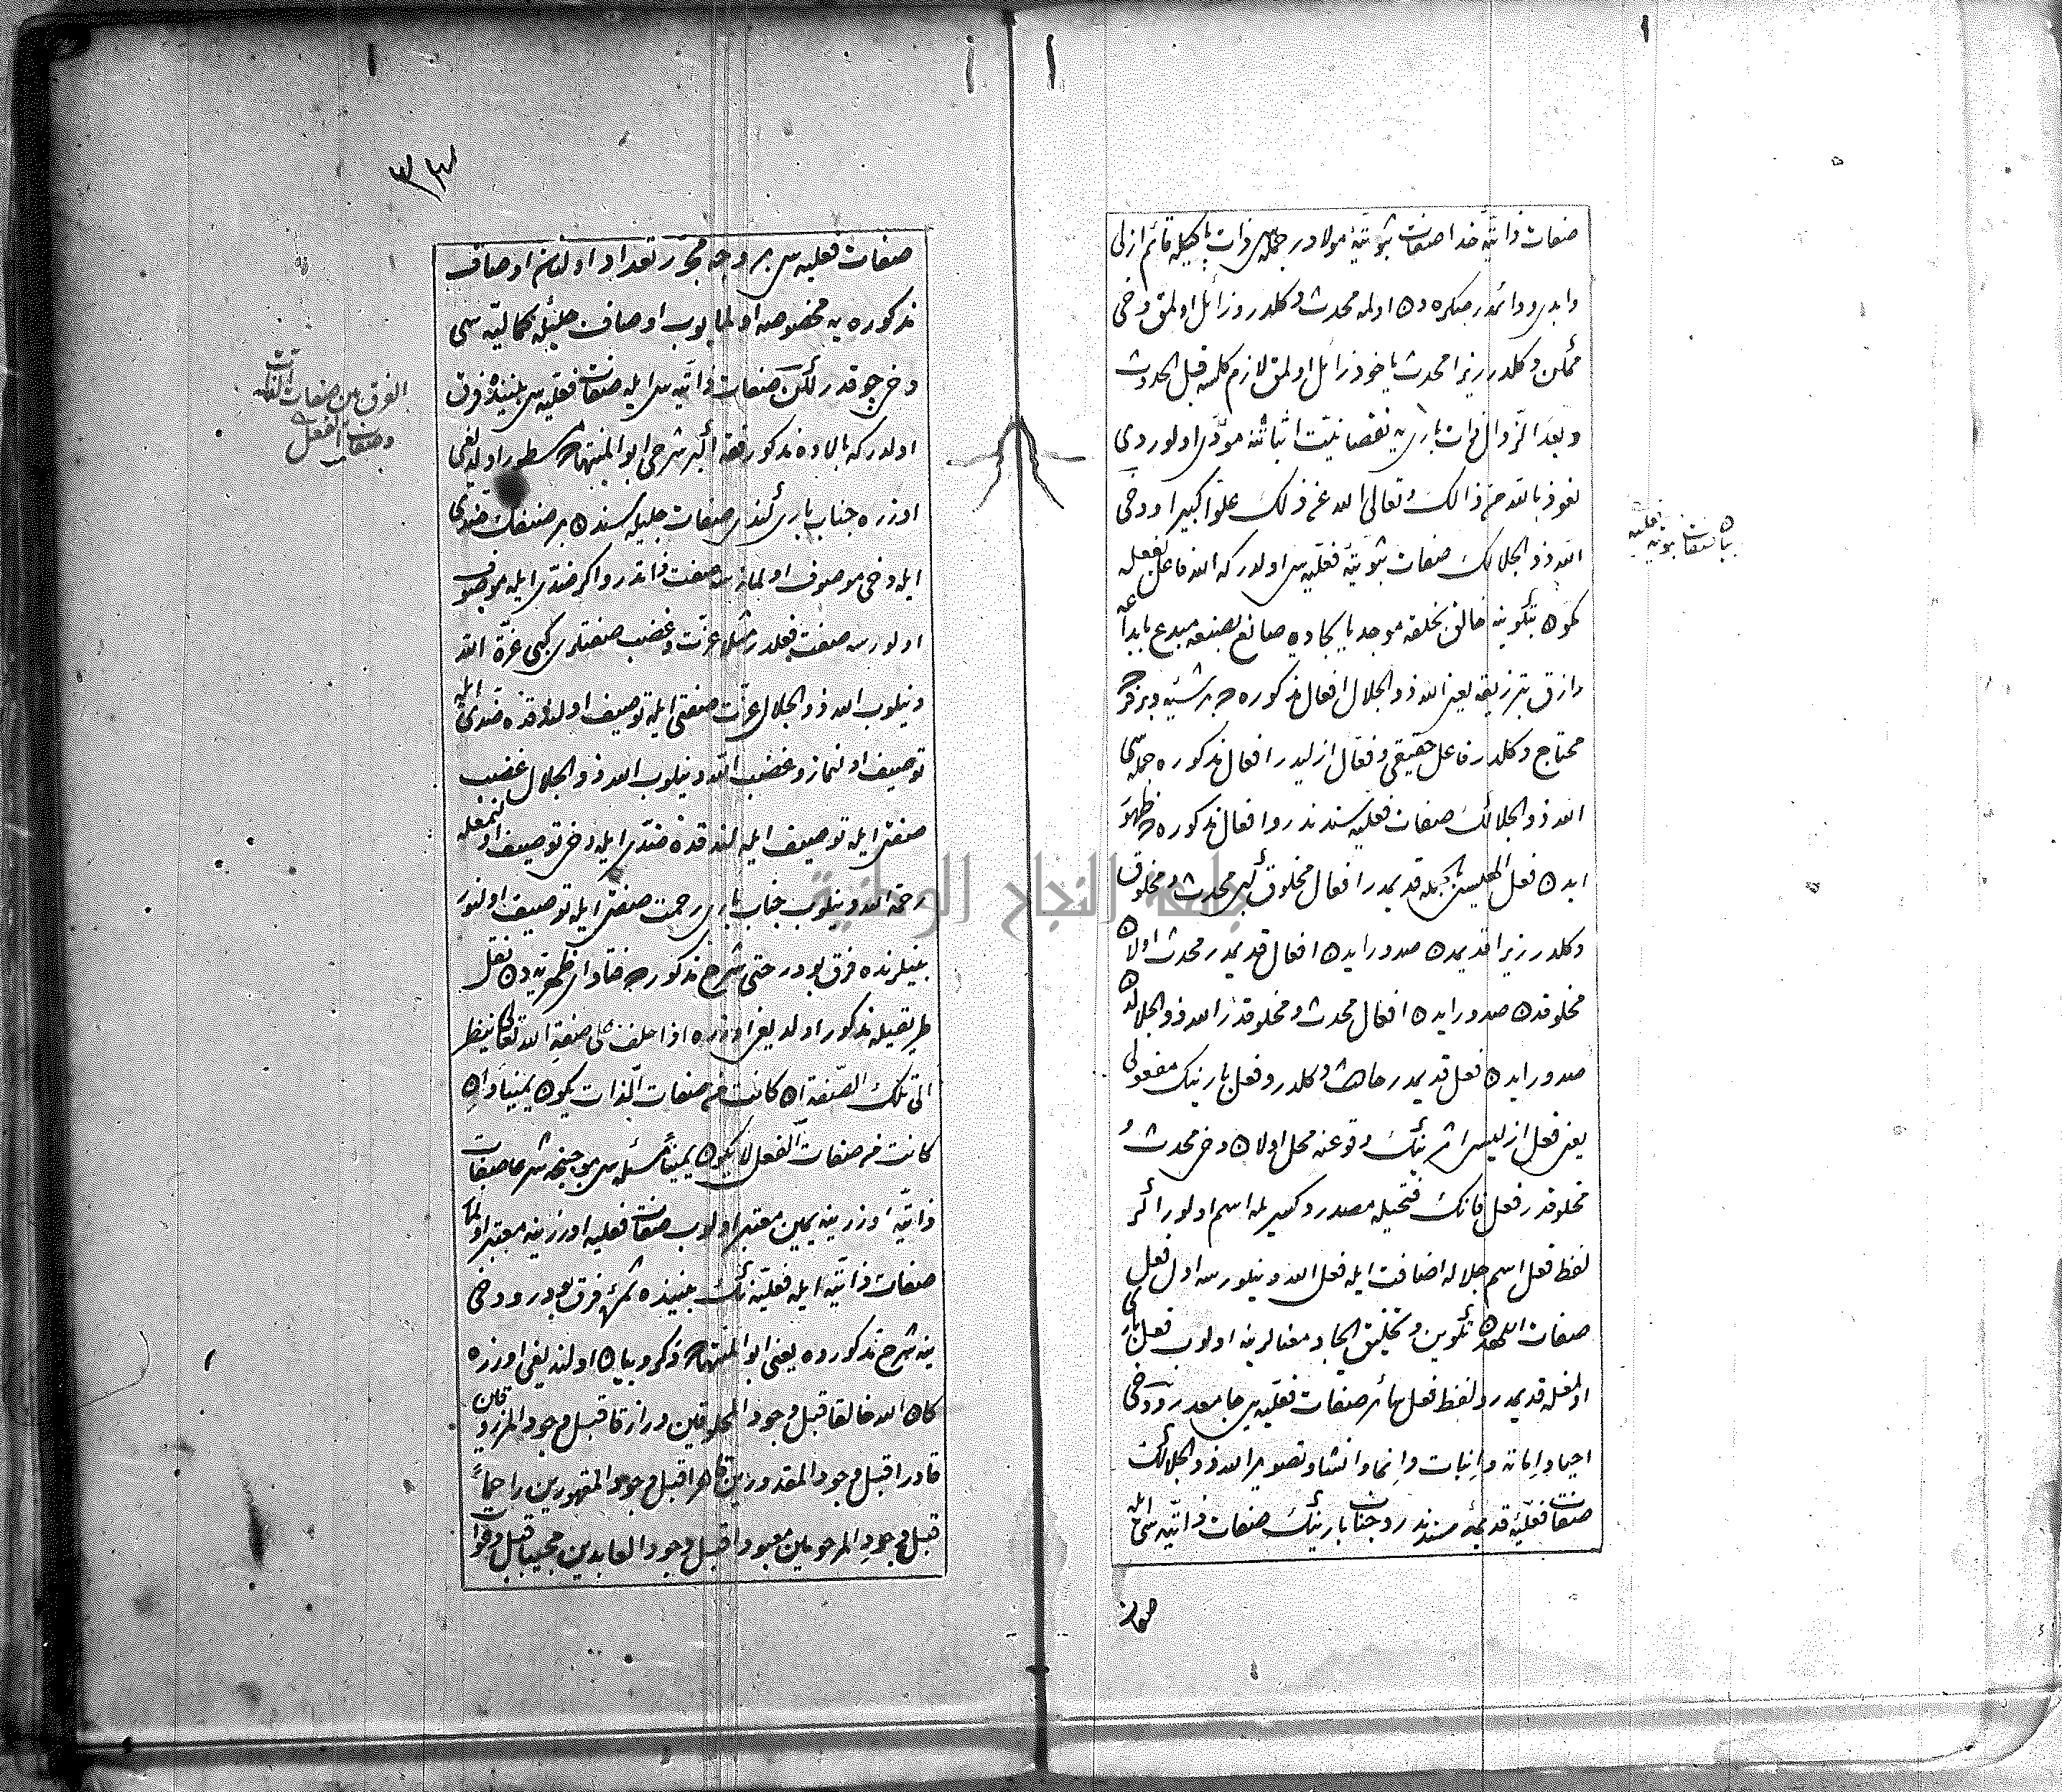 صفات ذاتيۀ خدا صفات ثبوتيۀ مولادر جمله‌سى ذات پاكيله قائم ازلى
وابدى ودائمدر صكره دن اولمه محدث دكلدر وزائل اولمق دخى
ممكن دكلدر زيرا محدث ياخود زائل اولمق لازم كلسه قبل الحدوث
وبعد الزوال ذات بارى يه نقصانيت اثباتنه مؤدى اولوردى
نعوذ بالله من ذالك وتعالى الله عن ذلك علوا كبيرا ودخى
الله ذو الجلالك صفات ثبوتيۀ فعليه سى اولدركه الله فاعل بفعله
مكون بتكوينه خالق بخلقه موجد بايجاده صانع بصنعه مبدع بابداعه
رازق بترزيقه يعنى الله ذو الجلال افعال مذكوره ده برشيئه وبرفرده
محتاج دكلدر فاعل حقيقى وفعال ازليدر افعال مذكوره جمله سى
الله ذو الجلالك صفات فعليه سندندر وافعال مذكوره ده ظهور
ايدن فعل الهيسى جمله قديمدر افعال مخلوق كبى محدث ومخلوق
دكلدر زيرا قديمدن صدور ايدن افعال قديمدر محدث اولان
مخلوقدن صدور ايدن افعال محدث ومخلوقدر الله ذو الجلالدن
صدور ايدن فعل قديمدر حادث دكلدر وفعل بارينك مفعولى
يعنى فعل ازليسى اثرينك وقوعنه محل اولان دخى محدث و
مخلوقدر فعل فانك فتحيله مصدر وكسريله اسم اولور اكر
لفظ فعل اسم جلاله اضافت ايله فعل الله دينلورسه اول فعل
صفات اللهدن تكوين وتخليق ايجاد معنالرينه اولوب فعل بارى
اولمغله قديمدر ولفظ فعل سائر صفات فعليه سى جامعدر ودخى
احيا واماته وانبات وانما وانشا وتصوير الله ذو الجلالك
صفات فعليۀ قديمه سندندر وجناب بارينك صفات ذاتيه سى ايله
صفات
بيان صفات ثبوتيه فعليه
٣٤
صفات فعليه سى بر وجه محرر تعداد اولنان اوصاف
مذكوره يه مخصوصه اولمايوب اوصاف جليلۀ كماليه سى
دخى چوقدر لكن صفات ذاتيه سى ايله صفات فعليه سى بيننده فرق
اولدركه بالاده مذكور فقه اكبر شرحى ابو المنتهاده مسطور اولديغى
اوزره جناب بارى كندى صفات جليله سنده بر صفتك ضدى
ايله دخى موصوف اولمازسه صفت ذاتدر واكر ضدى ايله موصوف
اولورسه صفت فعلدر مثلا عزت وغضب صفتلرى كبى عزة الله
دينلوب الله ذو الجلال عزت صفتى ايله توصيف اولندقده ضدى ايله
توصيف اولنماز وغضب الله دينلوب الله ذو الجلال غضب
صفتى ايله توصيف ايلندقده ضدى ايله دخى توصيف اولنمغله
رحمة الله دينلوب جناب بارى رحمت صفتى ايله توصيف اولنور
بينلرنده فرق بودر حتى شرح مذكورده فتاواى ظهيريه دن نقل
طريقيله مذكور اولديغى اوزره اذا حلف على صفة الله تعالى ينظر
الى تلك الصفة ان كانت من صفات الذات يكون يمينا وان
كانت من صفات الفعل لا يكون يمينا مسئله سى موجبنجه شرعا صفات
ذاتيه اوزرينه يمين معتبر اولوب صفات فعليه اوزرينه معتبر اولماز
صفات ذاتيه ايله فعليه نك بيننده فرق بودر ودخى
ينه شرح مذكورده يعنى ابو المنتهاده ذكر وبيان اولنديغى اوزره
كان الله خالقا قبل وجود المخلوقين ورازقا قبل وجود المرزوقين
قادرا قبل وجود المقدورين قاهرا قبل وجود المقهورين راحما
قبل وجود المرحومين معبودا قبل وجود العابدين مجيبا قبل دعوات
الفرق بين صفات الذات
وصفات الفعل
جامعة النجاح الوطنية